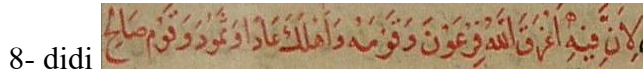 8- didi لِاَنَّ فِيهِ اَغْرَقَ اللّٰهُ فِرْعَوْنَ وَقَوْمَهُ وَاَهْلَكَ عَادًا وَثَمُودَ وَقَوْمَ صَالِحٍ